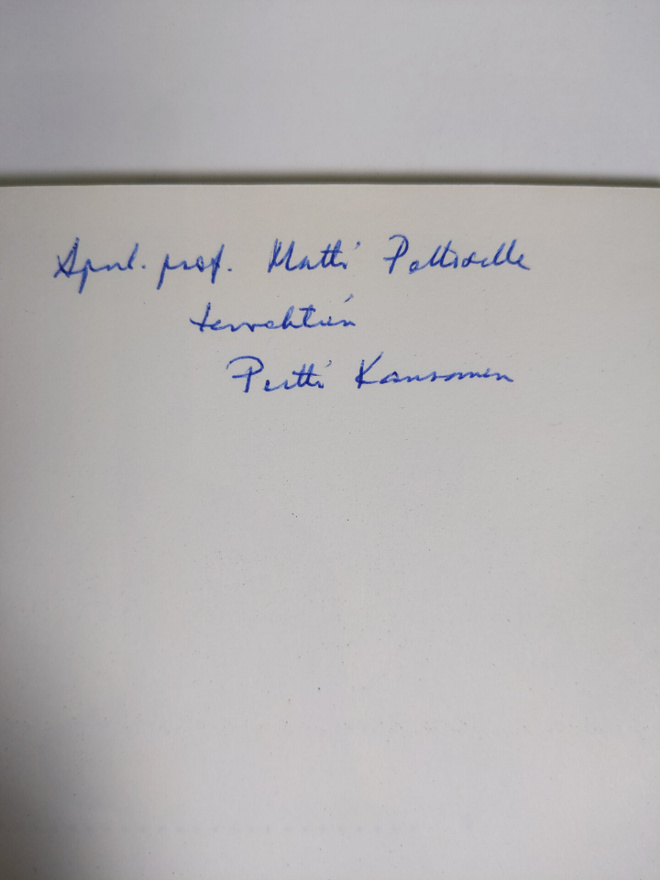 Apul. prof. Matti Peltoselle
tervehtien
Pertti Kansanen